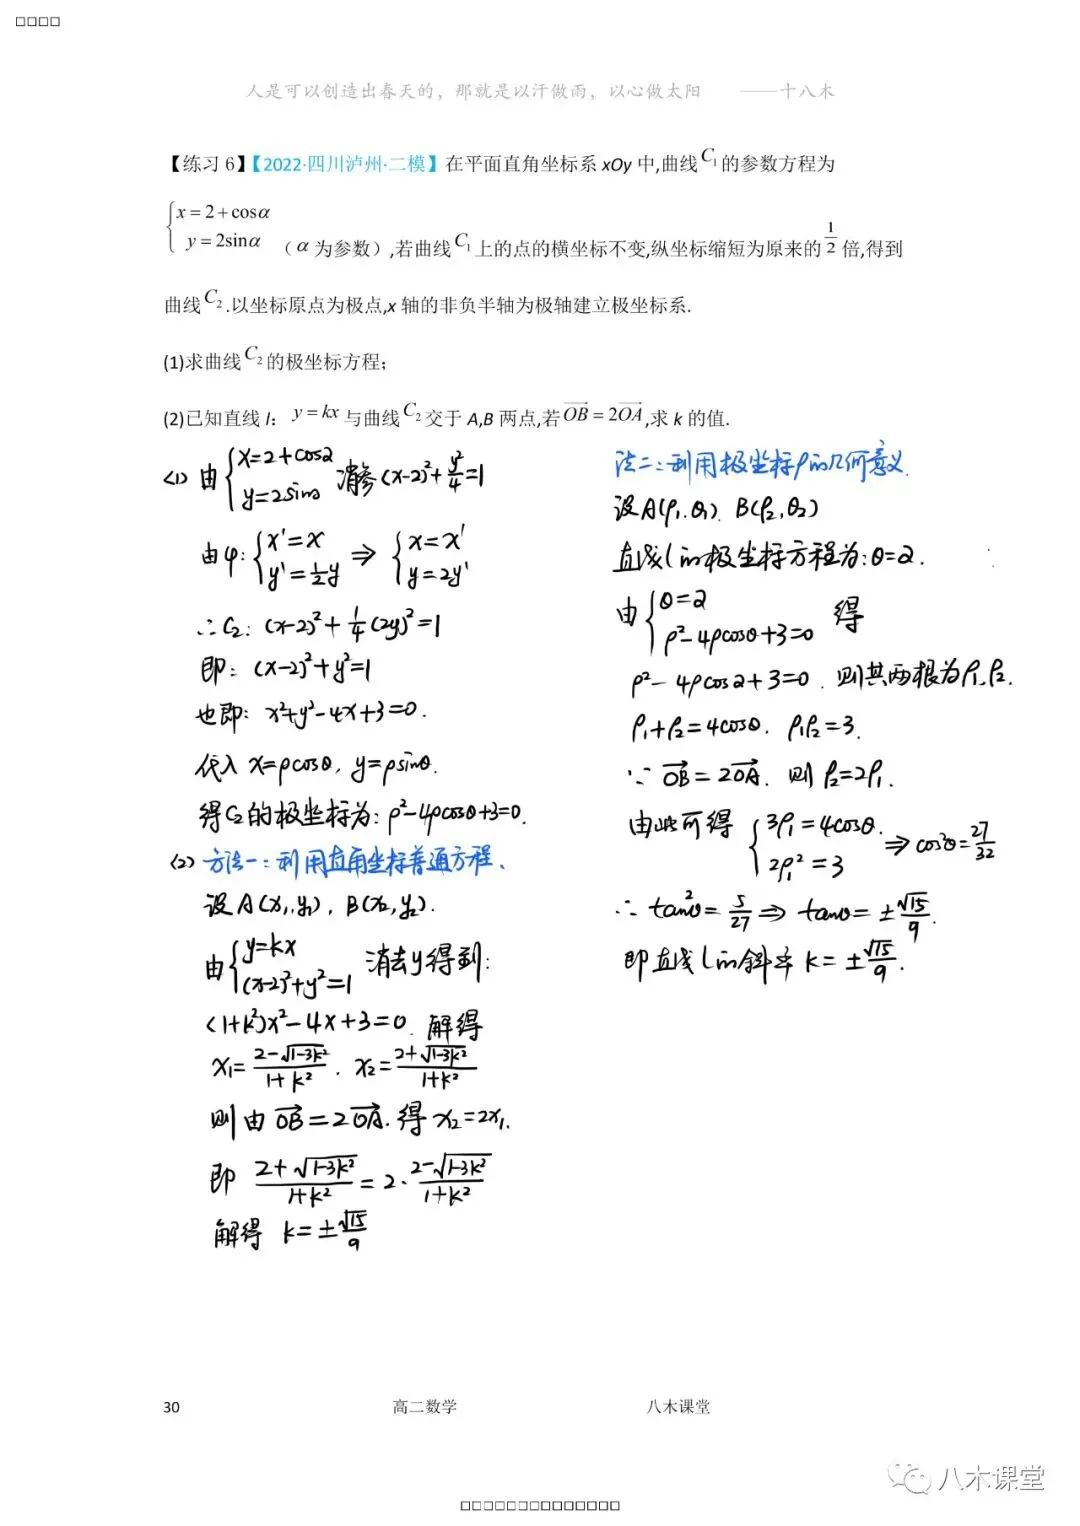 人是可以创造出春天的，那就是以汗做雨，以心做太阳 ——十八木
【练习 6】【2022·四川泸州·二模】在平面直角坐标系 xOy 中,曲线 C₁ 的参数方程为
{x = 2 + cosα
y = 2sinα （α 为参数）,若曲线 C₁ 上的点的横坐标不变,纵坐标缩短为原来的 1/2 倍,得到
曲线 C₂ .以坐标原点为极点,x 轴的非负半轴为极轴建立极坐标系.
(1)求曲线 C₂ 的极坐标方程；
(2)已知直线 l： y = kx 与曲线 C₂ 交于 A,B 两点,若 OB→ = 2OA→ ,求 k 的值.
(1) 由 {x=2+cosα
y=2sinα 消参 (x-2)²+y²/4=1
由φ: {x'=x
y'=1/2y ⇒ {x=x'
y=2y'
∴C₂: (x-2)²+1/4(2y)²=1
即: (x-2)²+y²=1
也即: x²+y²-4x+3=0.
代入 x=ρcosθ, y=ρsinθ.
得C₂的极坐标为: ρ²-4ρcosθ+3=0.
(2) 方法一:利用直角坐标普通方程、
设A(x₁,y₁), B(x₂,y₂).
由{y=kx
(x-2)²+y²=1 消去y得到:
(1+k²)x²-4x+3=0. 解得
x₁=(2-√(1-3k²))/(1+k²). x₂=(2+√(1-3k²))/(1+k²)
则由OB→=2OA→.得 x₂=2x₁.
即 (2+√(1-3k²))/(1+k²) = 2·(2-√(1-3k²))/(1+k²)
解得 k=±√15/9
法二:利用极坐标ρ的几何意义.
设A(ρ₁,θ₁). B(ρ₂,θ₂)
直线l的极坐标方程为:θ=α.
由{θ=α
ρ²-4ρcosθ+3=0 得
ρ²-4ρcosα+3=0. 则其两根为ρ₁,ρ₂.
ρ₁+ρ₂=4cosθ. ρ₁ρ₂=3.
∵ OB→=2OA→. 则 ρ₂=2ρ₁.
由此可得 {3ρ₁=4cosθ.
2ρ₁²=3 ⇒ cos²θ=27/32
∴ tan²θ=5/27 ⇒ tanθ=±√15/9.
即直线l的斜率 k=±√15/9.
30 高二数学 八木课堂
八木课堂